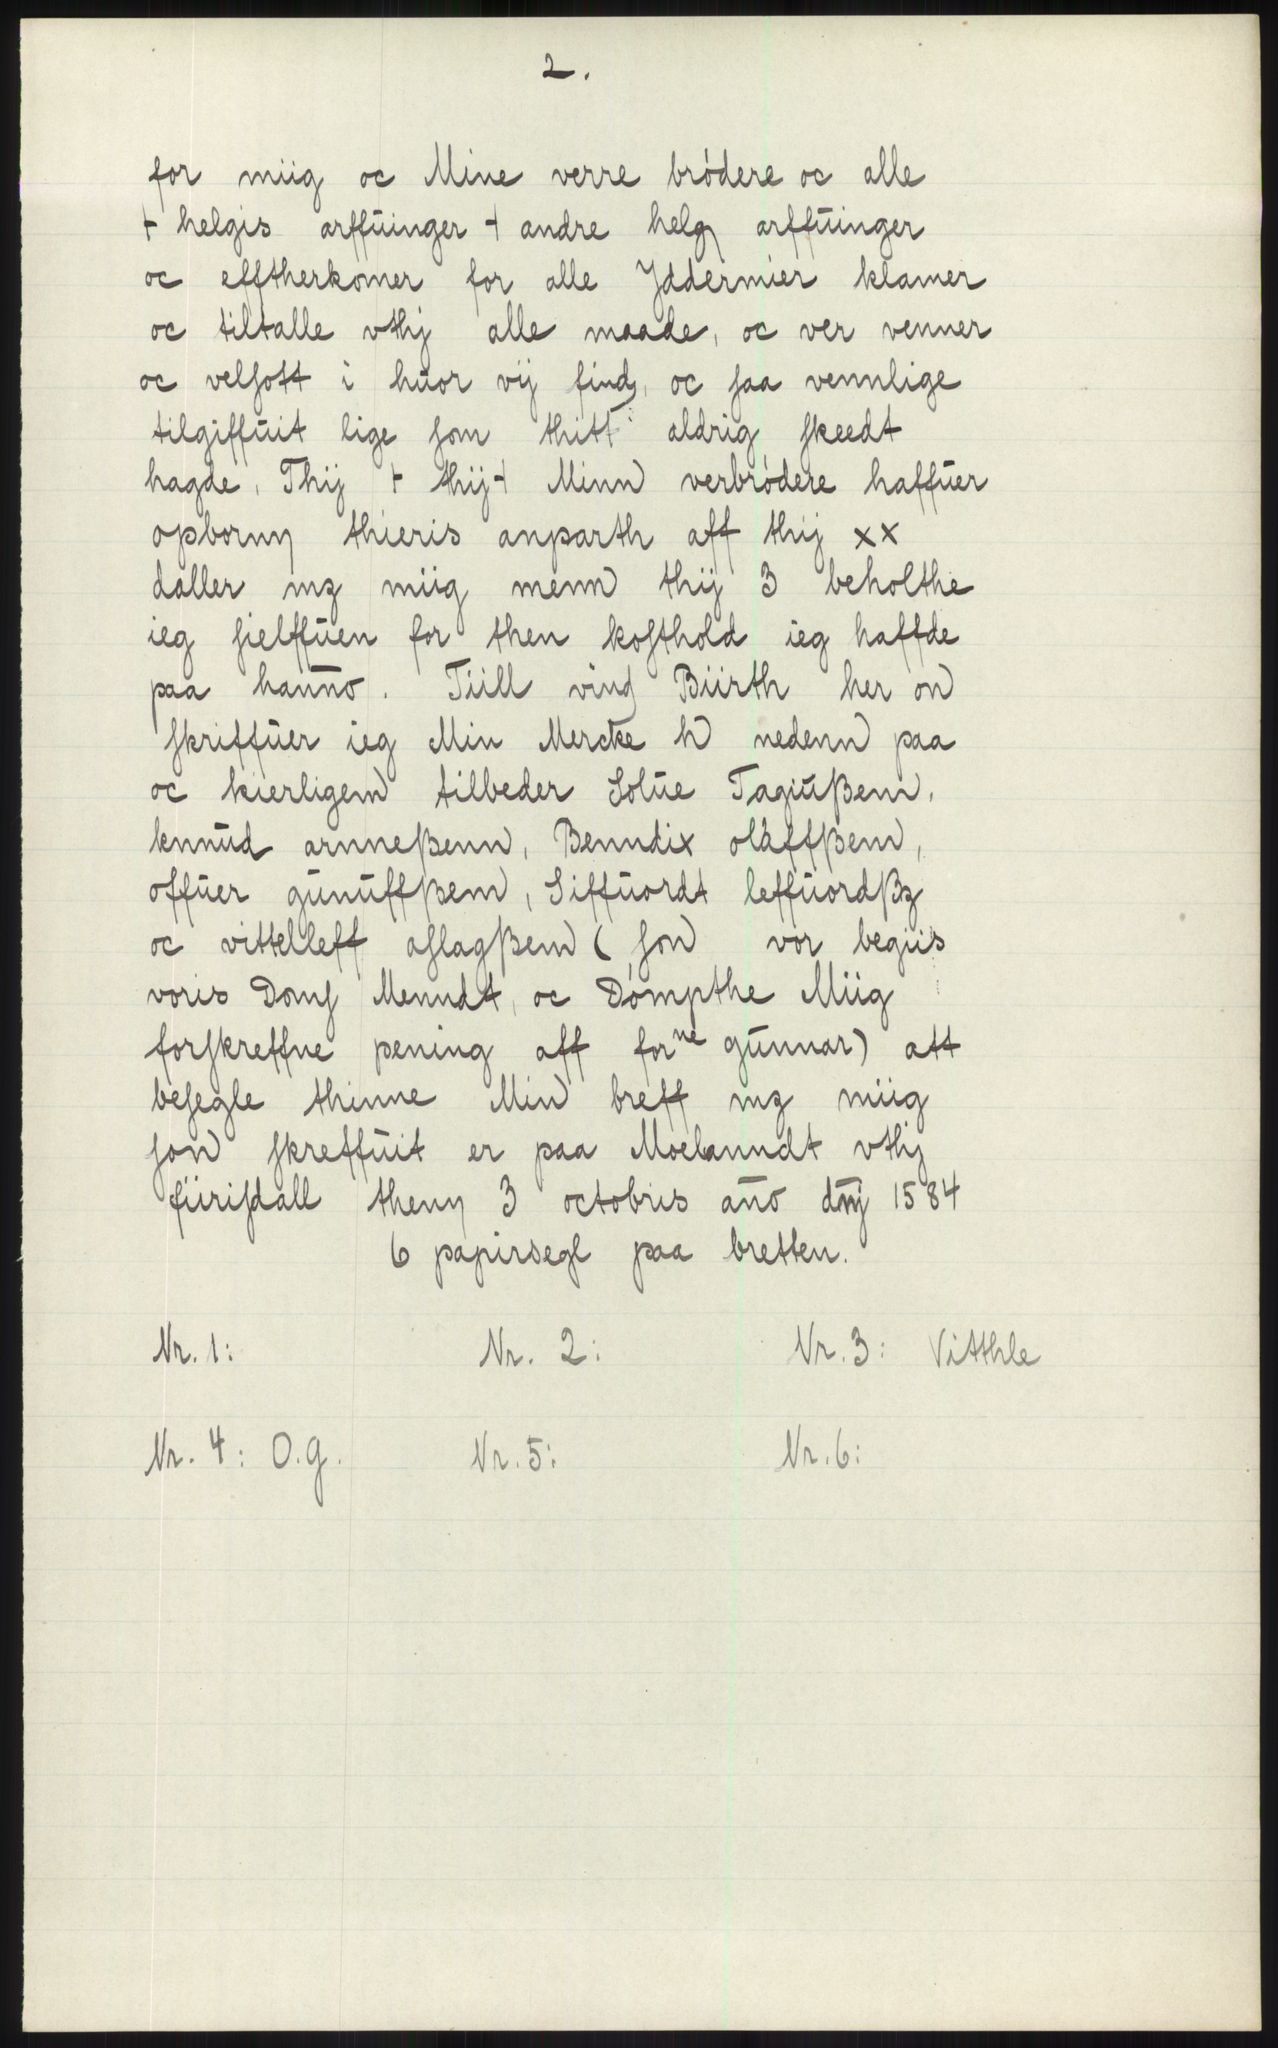 2.
for miig oc Mine verre brödere oc alle
+ helgis arffuinger + andre helg arffuinger
oc efftherkomer for alle Yddermier klamer
oc tiltalle vthj alle maade, oc ver venner
oc velsott i huor vij find, oc saa vennlige
tilgiffuit lige som thitt aldrig skeedt
hagde, Thij + thij + Minn verbrödere haffuer
opborny thieris anparth aff thij xx
daller mz miig menn thij 3 beholthe
ieg sielffuen for then kosthold ieg haffde
paa hanno. Tiill vind Biirth her on
skriffuer ieg Min Mercke h nedenn paa
oc kierligenn tilbeder Solue Tagiußenn,
knnud arnneßenn, Benndix olaffßenn,
offuer gunuffßenn, Siffuordt leffuordßz
oc vittelleff aslagßenn (son vor begiis
voris Dons Menndt, oc Dömpthe Miig
forskreffne pening aff forne gunnar) att
besegle thinne Min breff mz miig
son skreffuit er paa Moelanndt vthj
fiirisdall theny 3 octobris año dnj 1584
6 papirsegl paa bretten.
Nr. 1: Nr. 2: Nr. 3: Vitthle
Nr. 4: O.g. Nr. 5: Nr. 6: